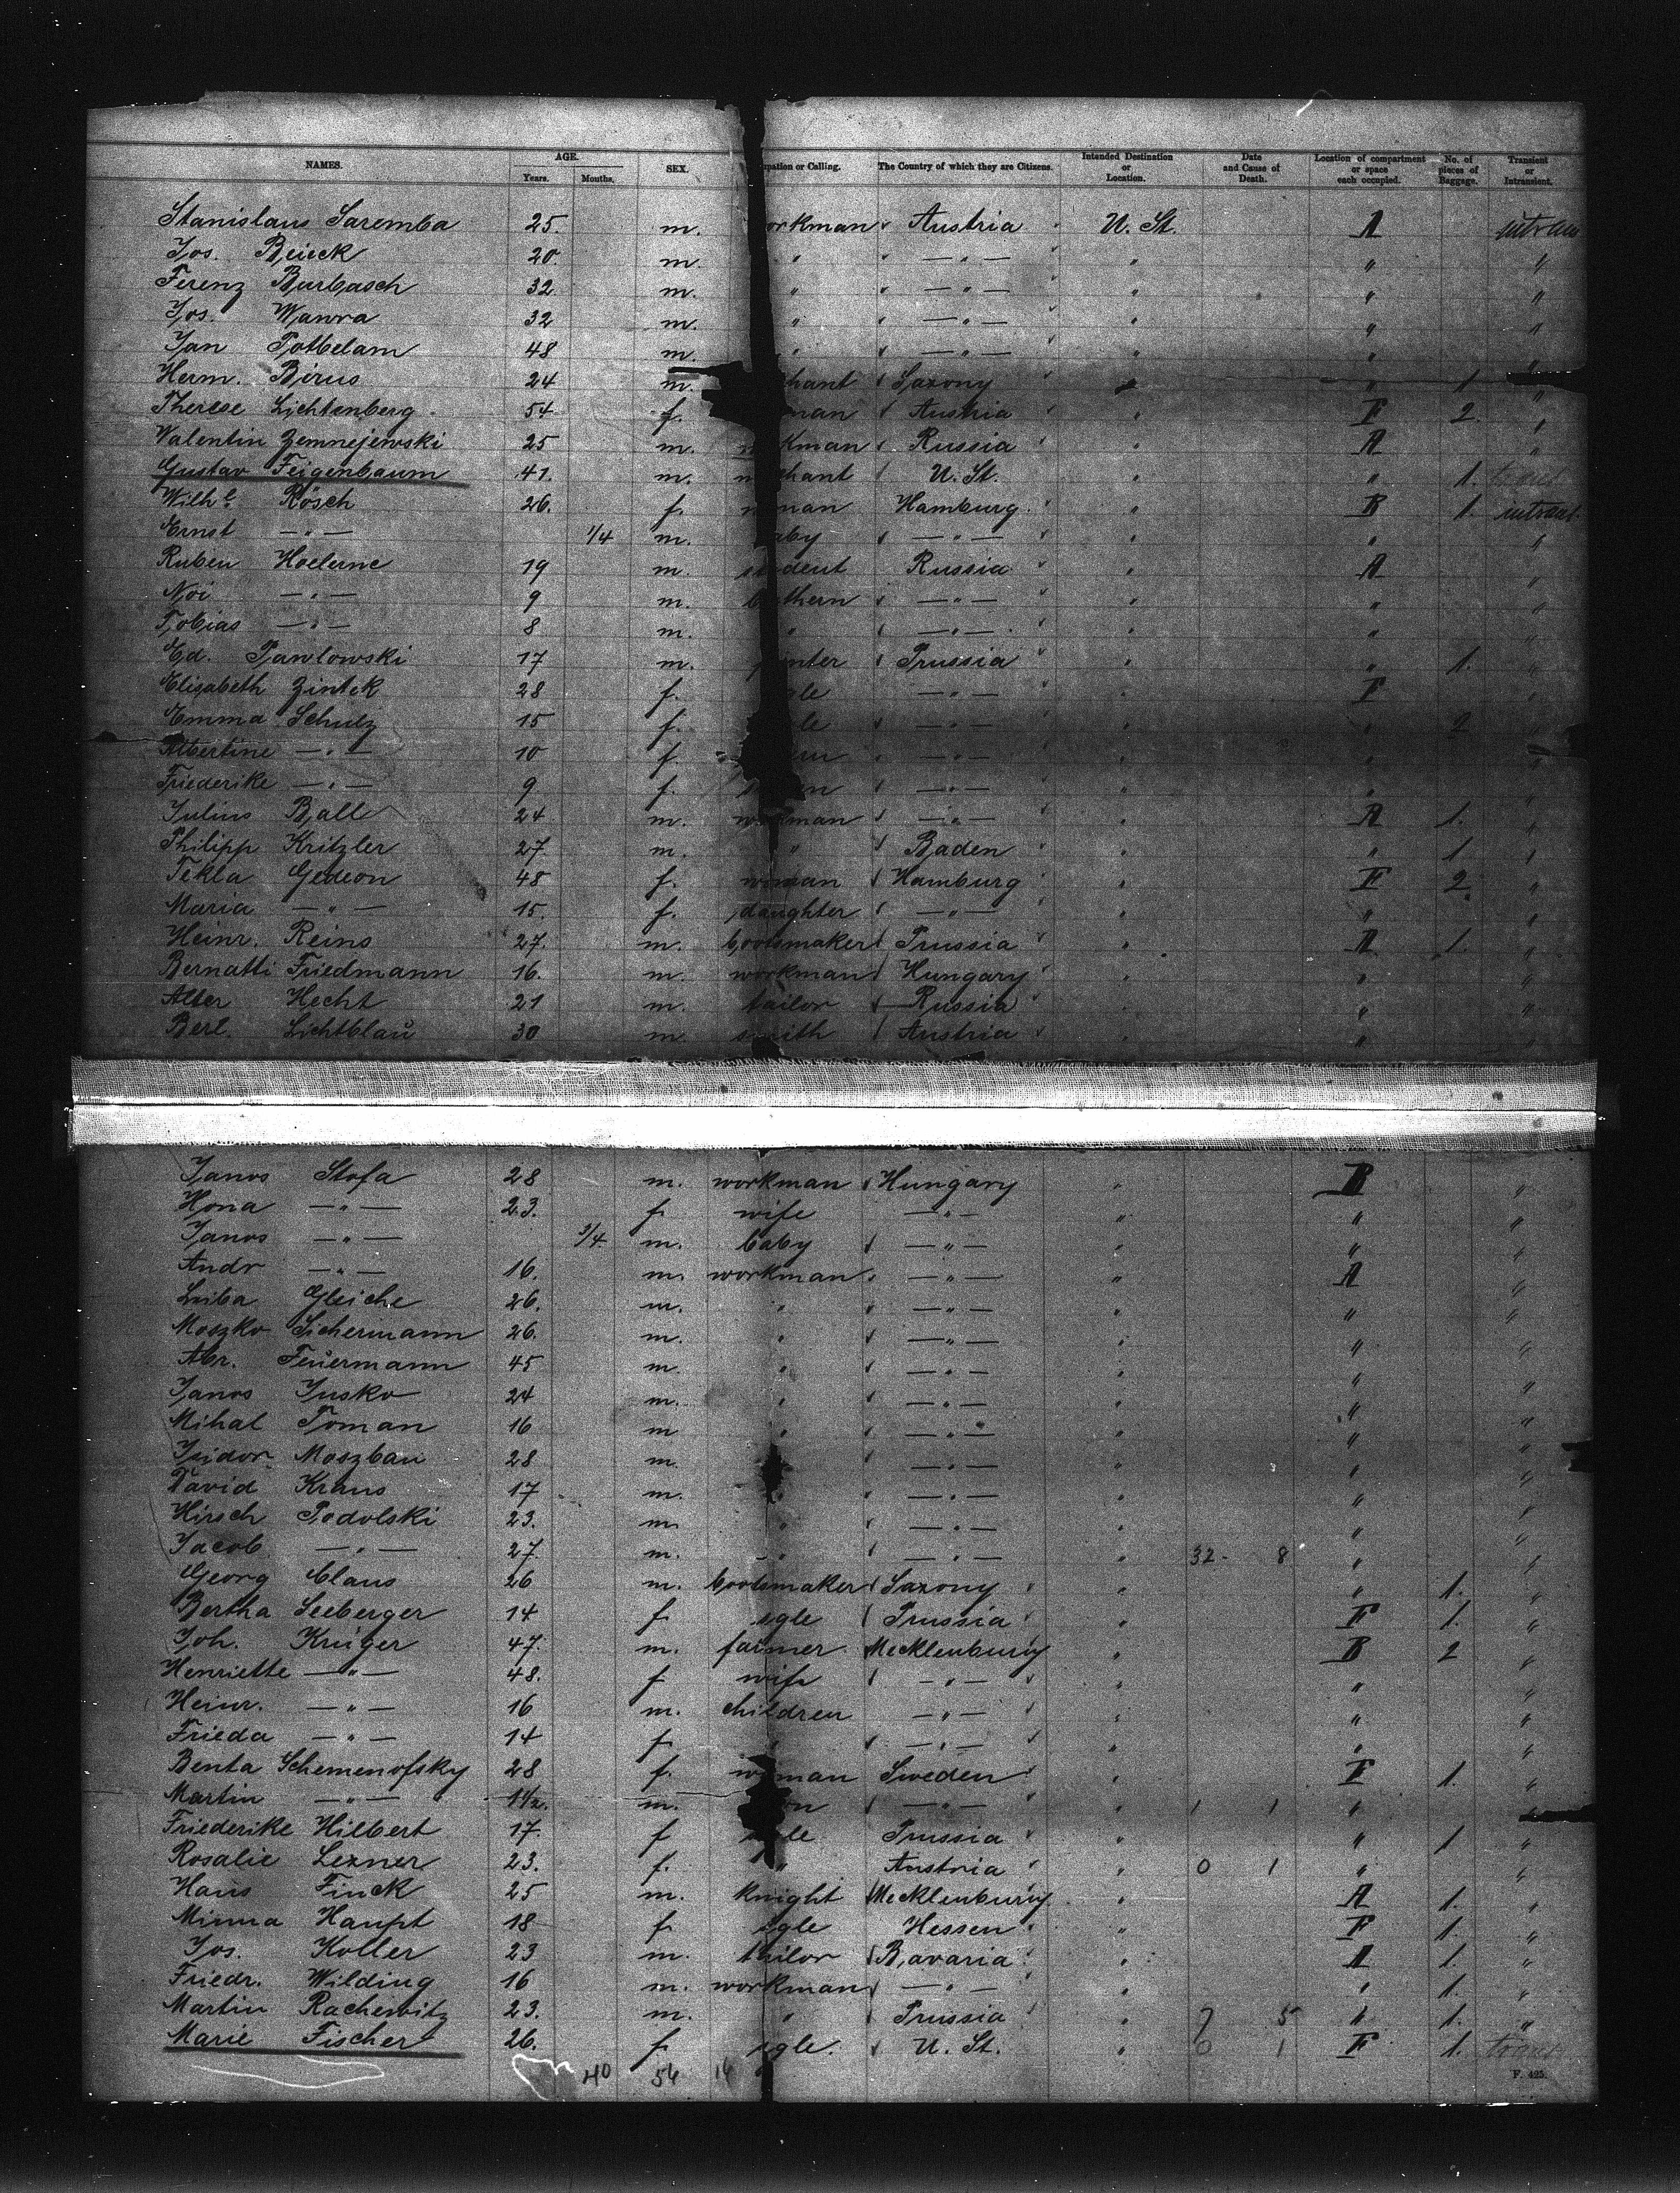 NAMES. AGE. Years. Mouths. SEX. pation or Calling. The Country of which they are Citizens. Intended Destination or Location. Date and Cause of Death. Location of compartment or space each occupied. No. of pieces of Baggage. Transient or Intransient.
Stanislaus Saremba 25. m. orkman Austria U. St. A
Jos. 20. m. " — " — " " "
Ferenz Burbasch 32. m. " — " — " " "
Jos. Wawra 32 m. " — " — " " "
Jan Potbelam 48 m. " — " — " " "
Herm. Birus 24 m. chant Saxony " " 1. "
Therese Lichtenberg 54. f. man Austria " F 2. "
Valentin Zemnejewski 25 m. kman Russia " A "
Gustav Feigenbaum 41. m. m chant U. St. " 1. trans
Wilhe Rösch 26. f. man Hamburg " B 1. intrant.
Ernst — " — 1/4 m. aby — " — " " "
Ruben Hoelerne 19 m. st dent Russia " A "
Noi — " — 9 m. b thern — " — " " "
Tobias — " — 8 m. " — " — " " "
Ed. Pawlowski 17 m. p inter Prussia " " 1. "
Elisabeth Zintek 28 f. gle — " — " F "
Emma Schulz 15 f. gle — " — " " 2 "
Albertine — " — 10 f. — " — " " "
Friederike — " — 9 f. — " — " " "
Julius Balle 24 m. workman — " — " A 1. "
Philipp Kritzler 27. m. " Baden " " 1 "
Tekla Gedeon 48 f. woman Hamburg " F 2. "
Maria — " — 15. f. daughter — " — " " "
Heinr. Reins 27. m. bootsmaker Prussia " A 1. "
Bernatti Friedmann 16. m. workman Hungary " " "
Alter Hecht 21 m. tailor Russia " " "
Berl. Lichtblau 30 m. smith Austria " " "
Janos Stofa 28 m. workman Hungary " B "
Hona — " — 23. f. wife — " — " " "
Janos — " — 3/4. m. baby — " — " " "
Andr — " — 16. m. workman — " — " A "
Leiba Gleiche 26. m. " — " — " " "
Moszko Sichermann 26. m. " — " — " " "
Abr. Feuermann 45 m. " — " — " " "
Janos Jusko 24 m. " — " — " " "
Mihal Toman 16 m " — " — " " "
Isidor Moszbau 28 m. — " — " " "
David Kraus 17 m. " — " — " " "
Hirsch Podolski 23. m. " — " — " " "
Jacob — " — 27. m. " — " — " 32 - 8 " "
Georg Claus 26 m. bootsmaker Saxony " " 1. "
Bertha Seeberger 14 f. sgle Prussia " F 1. "
Joh. Krüger 47. m. farmer Mecklenburg " B 2 "
Henriette — " — 48. f wife — " — " " "
Heinr. — " — 16 m. children — " — " " "
Frieda — " — 14 f " — " — " " "
Benta Schemenofsky 28 f. woman Sweden " F 1. "
Martin — " — 1 1/2. m. on — " — " 1 1 " "
Friederike Hilbert 17. f gle Prussia " " 1 "
Rosalie Lexner 23. f. " Austria " 0 1 " "
Hans Finck 25 m. knight Mecklenburg " A 1. "
Minna Haupt 18 f sgle Hessen " F 1. "
Jos. Koller 23 m. tailor Bavaria " A 1. "
Friedr. Wilding 16 m. workman — " — " " 1. "
Martin Rachewitz 23. m. " Prussia " 7 5 " 1. "
Marie Fischer 26. f sgle. U. St. " 0 1 F 1. trans
40 54 14 F. 425.